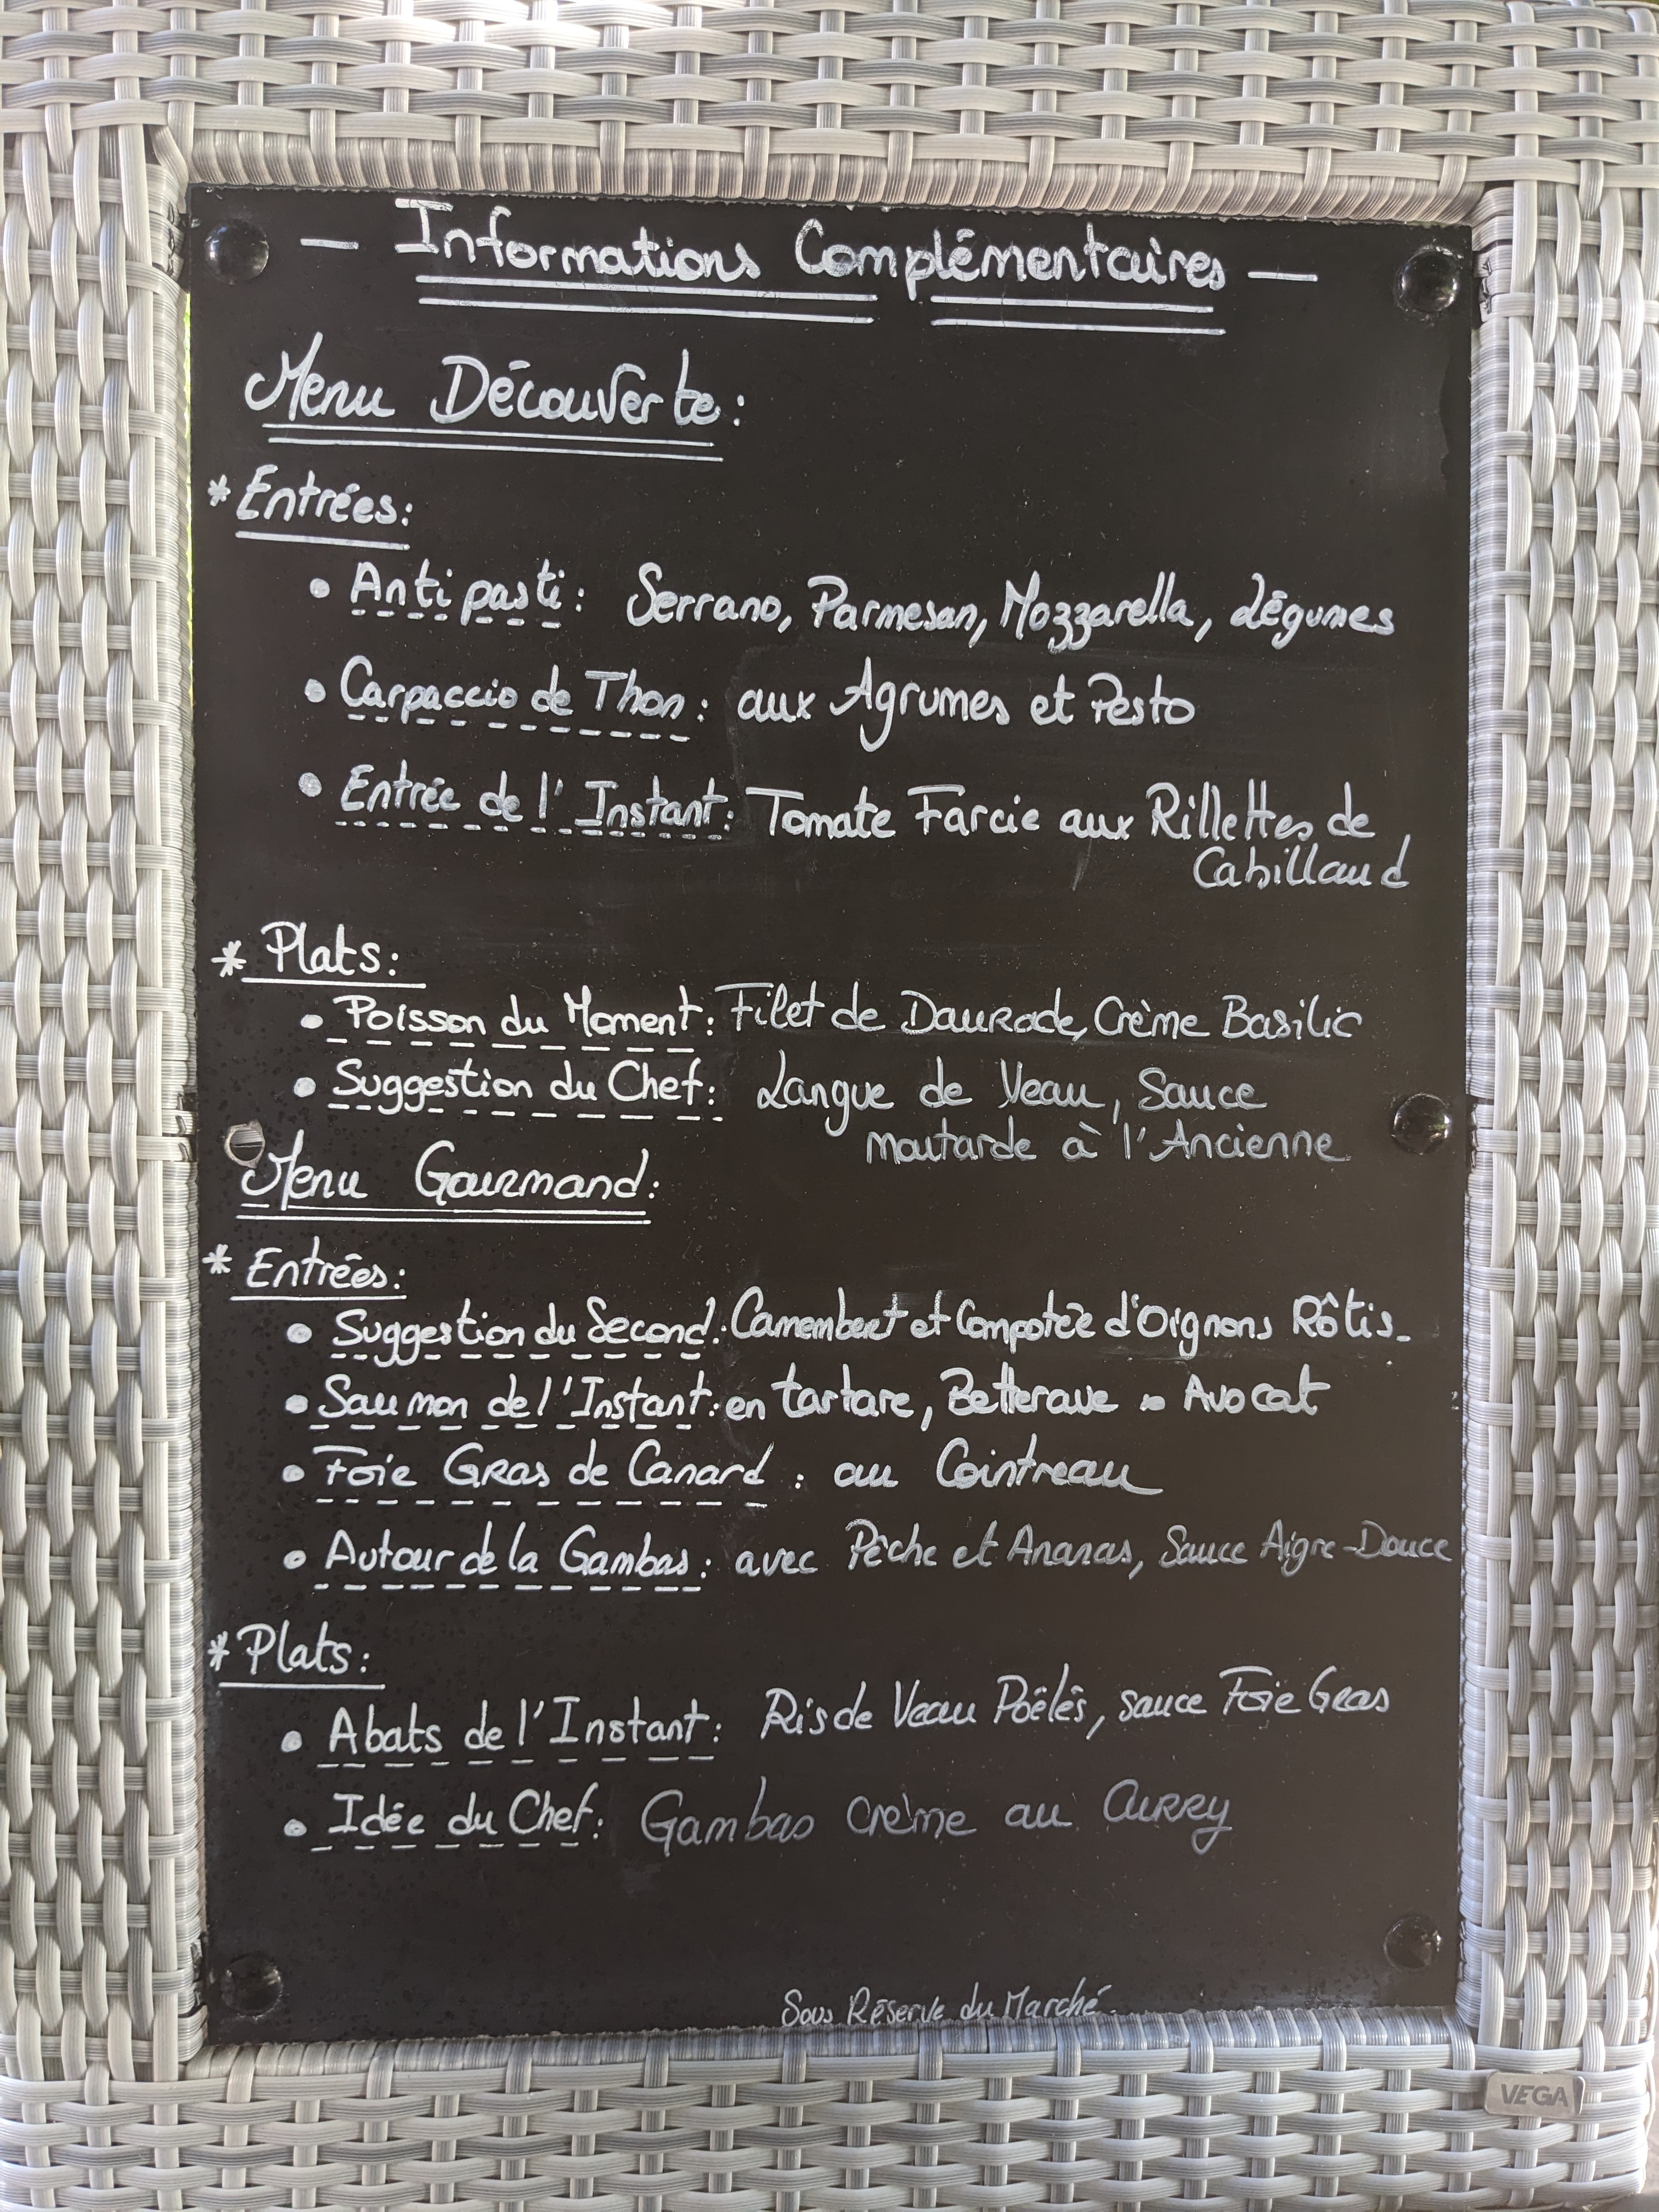 — Informations Complémentaires —
Menu Découverte :
* Entrées :
• Antipasti : Serrano, Parmesan, Mozzarella, Légumes
• Carpaccio de Thon : aux Agrumes et Pesto
• Entrée de l'Instant : Tomate Farcie aux Rillettes de
Cabillaud
* Plats :
• Poisson du Moment : Filet de Daurade, Crème Basilic
• Suggestion du Chef : Langue de Veau, Sauce
moutarde à l'Ancienne
Menu Gourmand :
* Entrées :
• Suggestion du Second : Camembert et Compotée d'Oignons Rôtis.
• Saumon de l'Instant : en tartare, Betterave - Avocat
• Foie Gras de Canard : au Cointreau
• Autour de la Gambas : avec Pêche et Ananas, Sauce Aigre-Douce
* Plats :
• Abats de l'Instant : Ris de Veau Poêlés, sauce Foie Gras
• Idée du Chef : Gambas crème au curry
Sous Réserve du Marché.
VEGA